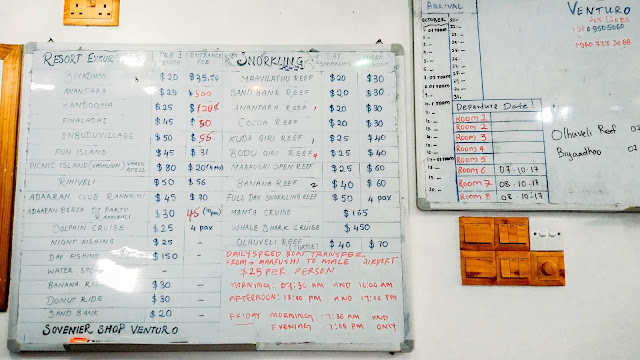 RESORT EXCUR PER 1 PERSON ENTRANCE FEE
BIYADHOO $20 $35.70
ANANTARA $25 $500
KANDOOMA $25 $120
FIHALHOHI $45 $30
EMBUDU VILLAGE $50 $55
FUN ISLAND $45 $31
PICNIC ISLAND ATOLL $80 $20
RIHIVELI $50 $56
ADAARAN CLUB RANNALHI $45 $70
ADAARAN BEACH DJ PARTY RANNALHI $30 45
DOLPHIN CRUISE $25 4 pax
NIGHT FISHING $25 -
DAY FISHING $150 -
WATER -
BANANA RIDE $30 -
DONUT RIDE $30 -
SAND BANK $20 -
SOVENIER SHOP VENTURO
SNORKLING DAY NIGHT
MAHVILATHU REEF $20 $30
SAND BANK REEF $20 $30
ANANTARA REEF $20 $30
COCOA REEF $20 $30
KUDA GIRI REEF $25 $40
BODU GIRI REEF $25 $40
MAAFUSHI OPEN REEF $25 $60
BANANA REEF $40 $60
FULL DAY SNORKLING REEF $50 4 pax
MANTA CRUISE $165
WHALE SHARK CRUISE $450
OLHUVELI REEF (TURTLE) $40 $70
DAILY SPEED BOAT TRANSFER
FROM MAAFUSHI TO MALE AIRPORT
$25 PER PERSON
MORNING: 07:30 AM AND 10:00 AM
AFTERNOON: 13:00 PM AND 17:00 PM
FRIDAY MORNING 7:30 AM AND
EVENING 1:00 PM ONLY
ARRIVAL
OCTOBER
Departure Date!
Room 1
Room 2
Room 3
Room 4
Room 5
Room 6 07.10.17
Room 7 08.10.17
Room 8 08.10.17
VENTURO
Olhuveli Reef
Biyaadhoo